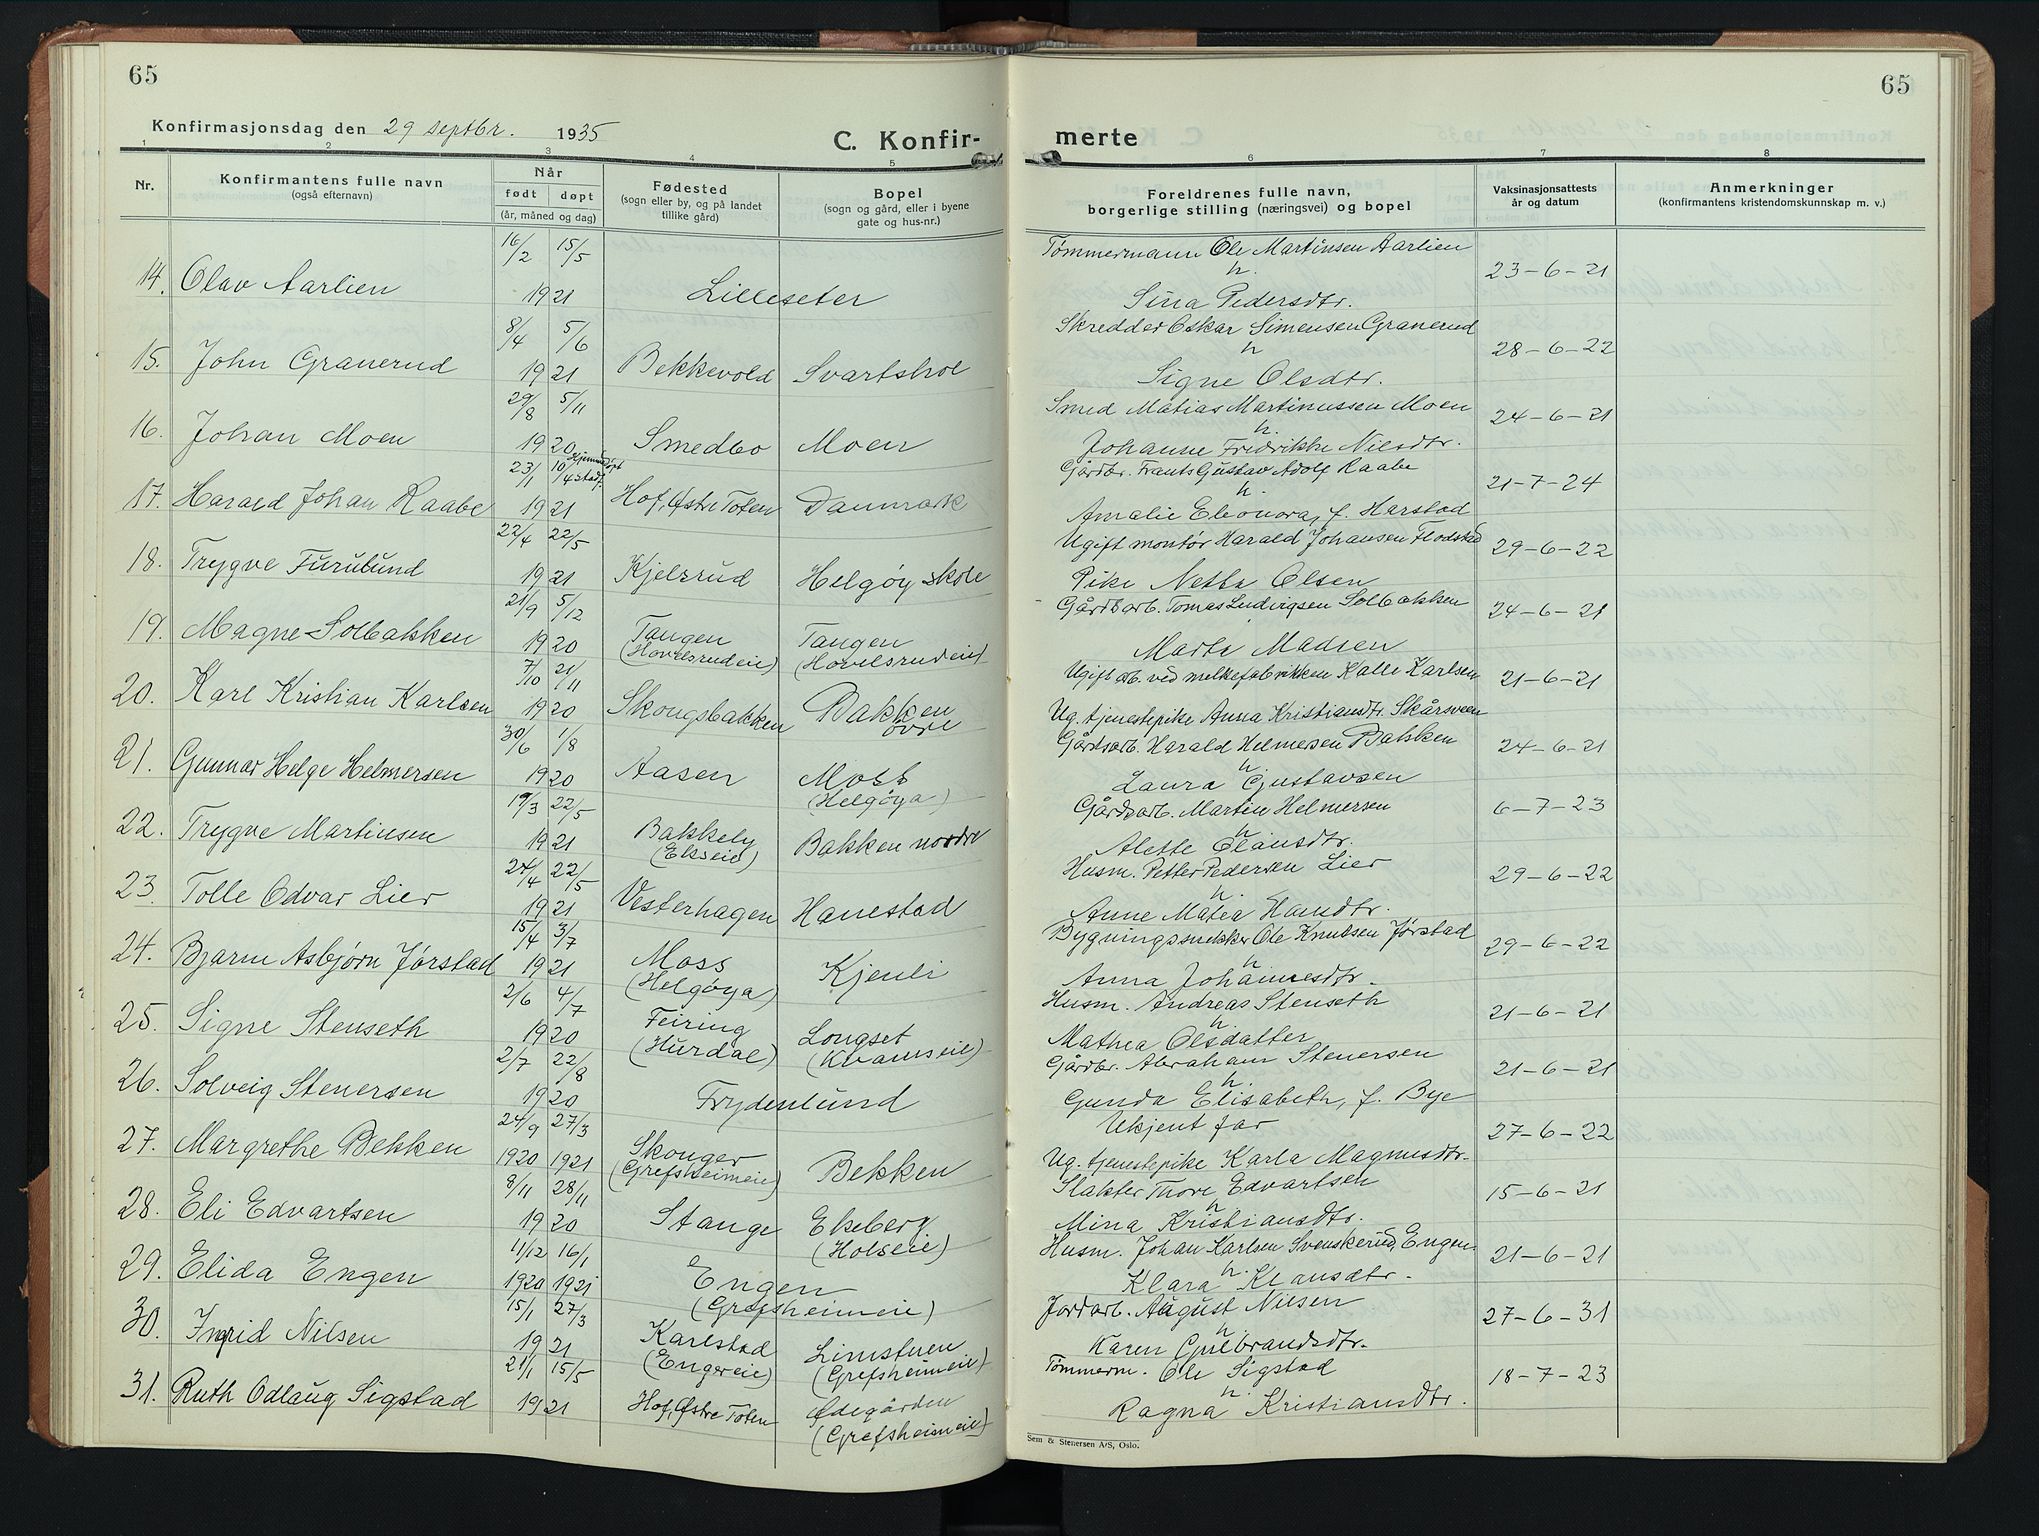 65
65
Konfirmasjonsdag den 29 septbr. 1935
C. Konfir-
merte
1 2 3 4 5 6 7 8
Nr.
Konfirmantens fulle navn
(også efternavn)
Når
født døpt
(år, måned og dag)
Fødested
(sogn eller by, og på landet
tillike gård)
Bopel
(sogn og gård, eller i byens
gate og hus-nr.)
Foreldrenes fulle navn,
borgerlige stilling (næringsvei) og bopel
Vaksinasjonsattests
år og datum
Anmerkninger
(konfirmantens kristendomskunnskap m. v.)
16/2 15/5 Tømmermann Ole Martinsen Aarlien
14. Olav Aarlien 1921 Lilleseter h. 23-6-21
Sina Pedersdtr.
8/4 5/6 Skredder Oskar Simensen Granerud
15. John Granerud 1921 Bekkevold Svartshol h 28-6-22
Signe Olsdtr.
29/8 5/11 Smed Matias Martinussen Moen
16. Johan Moen 1920 Smedbo Moen h. 24-6-21
Johanne Fridrikke Nilsdtr.
23/1 10/4 Hjemmedøpt stadf. Gårdbr. Frants Gustav Adolf Raabe
17. Harald Johan Raabe 1921 Hof, Østre Toten Danmark h. 21-7-24
Amalie Eleonora, f. Harstad
22/4 22/5 Ugift montør Harald Johansen Flodstad
18. Trygve Furulund 1921 Kjelsrud Helgøy skole 29-6-22
Pike Netta Olsen
21/9 5/12 Gårdsarb. Tomas Ludvigsen Solbakken
19. Magne Solbakken 1920 Tangen (Hovelsrudeie) Tangen (Hovelsrudeie) 24-6-21
Marte Madsen
7/10 21/11 Ugift arb. ved melkefabrikken Kalle Karlsen
20. Karl Kristian Karlsen 1920 Skougsbakken Bakken øvre 21-6-21
Ug. tjenestepike Anna Kristiansdtr. Skårsveen
30/6 1/8 Gårdsarb. Harald Helmersen Bakken
21. Gunnar Helge Helmersen 1920 Aasen Moss (Helgøya) h. 24-6-21
Laura Gustavsen
19/3 22/5 Gårdsarb. Martin Helmersen
22. Trygve Martinsen 1921 Bakkely (Ekseie) Bakken nordre h 6-7-23
Alette Olausdtr.
24/4 22/5 Husm. Petter Pedersen Lier
23. Tolle Odvar Lier 1921 Vesterhagen Hanestad h. 29-6-22
Anne Matea Hansdtr.
15/4 3/7 Bygningssnekker Ole Knutsen Jørstad
24. Bjarne Asbjørn Jørstad 1921 Moss (Helgøya) Kjenli h 29-6-22
Anna Johannesdtr.
2/6 4/7 Husm. Andreas Stenseth
25. Signe Stenseth 1920 Feiring (Hurdal) Longset (Kvamseie) h. 21-6-21
Mathea Olsdatter
2/7 22/8 Gårdbr. Abraham Stenersen
26. Solveig Stenersen 1920 Frydenlund h. 21-6-21
Gunda Elisabeth, f. Bye
24/9 27/3 Ukjent far
27. Margrethe Bekken 1920 1921 Skonger (Grefsheimeie) Bekken 27-6-22
Ug. tjenestepike Karla Magnusdtr.
8/11 28/11 Slakter Thore Edvartsen
28. Eli Edvartsen 1920 Stange Ekeberg (Holseie) h. 15-6-21
Mina Kristiansdtr.
11/12 16/1 Husm. Johan Karlsen Svenskerud, Engen.
29. Elida Engen 1920 1921 Engen (Grefsheimeie) h. 21-6-21
Klara Klausdtr.
15/1 27/3 Jordarb. August Nilsen
30. Ingrid Nilsen 1921 Karlstad (Engereie) Limstuen (Grefsheimeie) h. 27-6-31
Karen Gulbrandsdtr.
21/1 15/5 Tømmerm. Ole Sigstad
31. Ruth Odlaug Sigstad 1921 Hof, Østre Toten Ødegården (Grefsheimeie) h. 18-7-23
Ragna Kristiansdtr.
Sem & Stenersen A/S, Oslo.